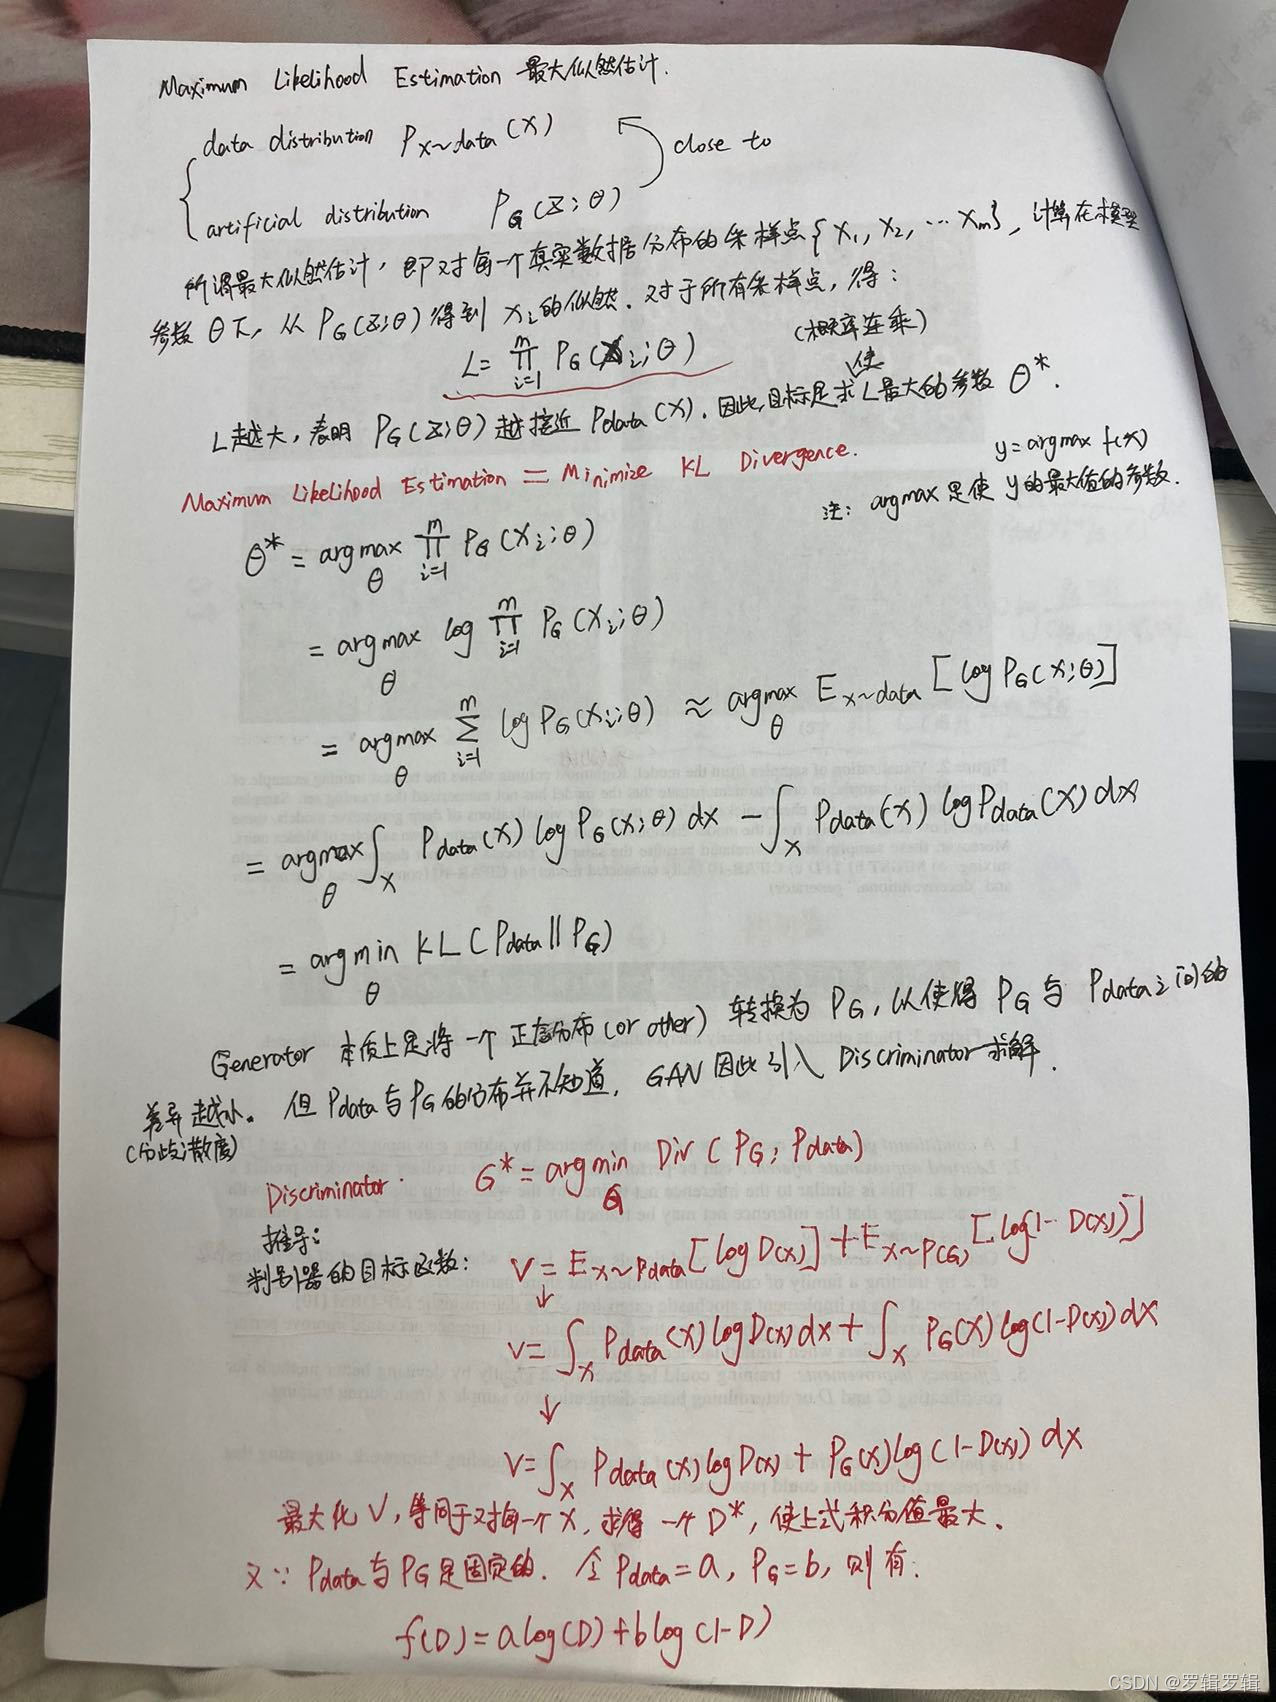 Maximum Likelihood Estimation 最大似然估计.
data distribution P_{X~data}(X)
close to
artificial distribution P_G(Z;θ)
所谓最大似然估计, 即对每一个真实数据分布的采样点{X_1, X_2, … X_m}, 计算在模型
参数 θ下, 从 P_G(Z;θ) 得到 x_i的似然. 对于所有采样点, 得:
L= ∏_{i=1}^{m} P_G(X_i;θ) (概率连乘)
L越大, 表明 P_G(Z;θ) 越接近 P_data(X). 因此,目标是求使L最大的参数 θ*.
Maximum Likelihood Estimation = Minimize KL Divergence.
y=argmax f(x)
注: argmax是使 y的最大值的参数.
θ* = argmax_θ ∏_{i=1}^{m} P_G(X_i;θ)
= argmax_θ log ∏_{i=1}^{m} P_G(X_i;θ)
= argmax_θ ∑_{i=1}^{m} log P_G(X_i;θ) ≈ argmax_θ E_{X~data}[log P_G(X;θ)]
= argmax_θ ∫_X P_data(X) log P_G(X;θ) dx − ∫_X P_data(X) log P_data(X) dx
= argmin_θ KL(P_data||P_G)
Generator 本质上是将一个正态分布(or other) 转换为 P_G, 以使得 P_G 与 P_data之间的
差异越小。但 P_data与P_G的分布并不知道, GAN因此引入 Discriminator求解.
(分歧;散度)
Discriminator. G* = argmin_G Div(P_G, P_data)
推导:
判别器的目标函数: V = E_{X~Pdata}[log D(x)] + E_{X~P(G)}[log(1-D(x))]
↓
V= ∫_X P_data(X) log D(x) dx + ∫_X P_G(X) log(1-D(x)) dx
↓
V= ∫_X P_data(X) log D(x) + P_G(x) log(1-D(x)) dx
最大化 V, 等同于对每一个 X, 求得一个 D*, 使上式积分值最大.
又∵ P_data与P_G是固定的. 令 P_data=a, P_G=b, 则有:
f(D) = a log(D) + b log(1-D)
CSDN @罗辑罗辑